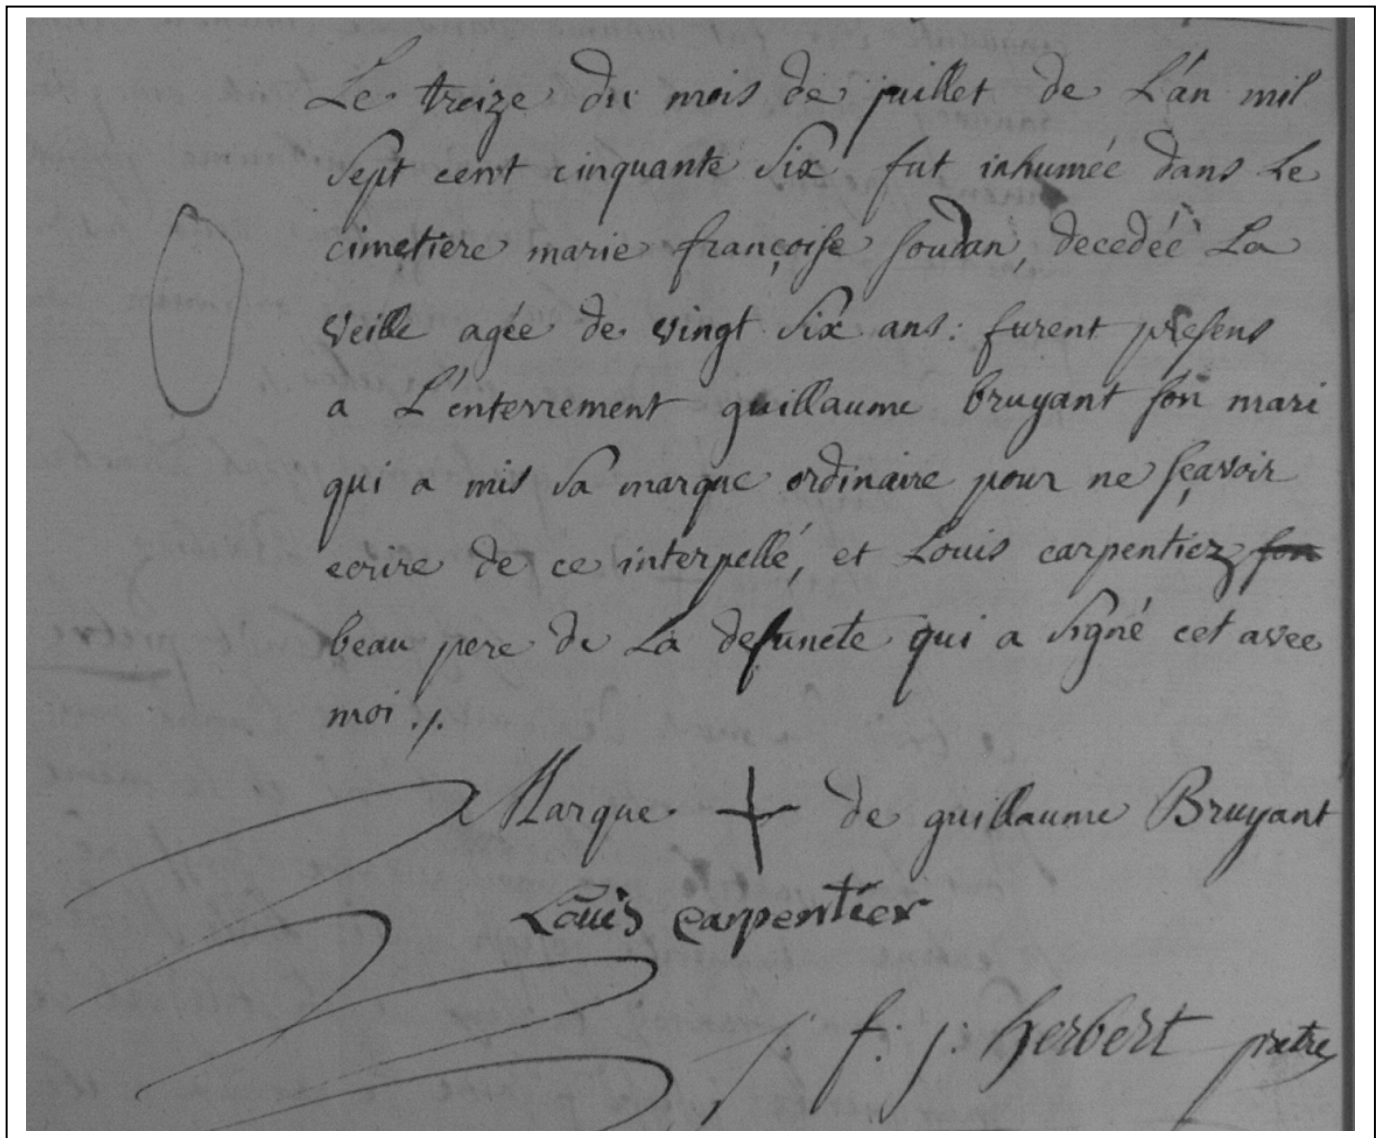 Le treize du mois de juillet de L'an mil
Sept cent cinquante Six fut inhumée dans Le
cimetiere marie françoise soudan, decedée La
veille agée de vingt Six ans: furent presens
a L'enterrement guillaume bruyant son mari
qui a mis Sa marque ordinaire pour ne sçavoir
ecrire de ce interpellé, et Louis carpentiez son
beau pere de La defuncte qui a Signé cet avec
moi ./.
Marque + de guillaume Bruyant
Louis carpentier
j: f: j: herbert pretre